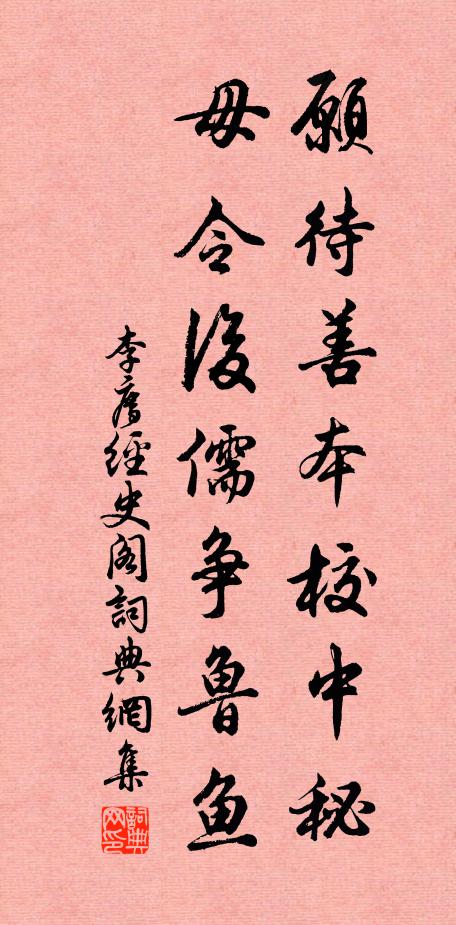 願待善本校中秘
毋令後儒争魯魚
李廌經史阁詞典網集
詞典网印